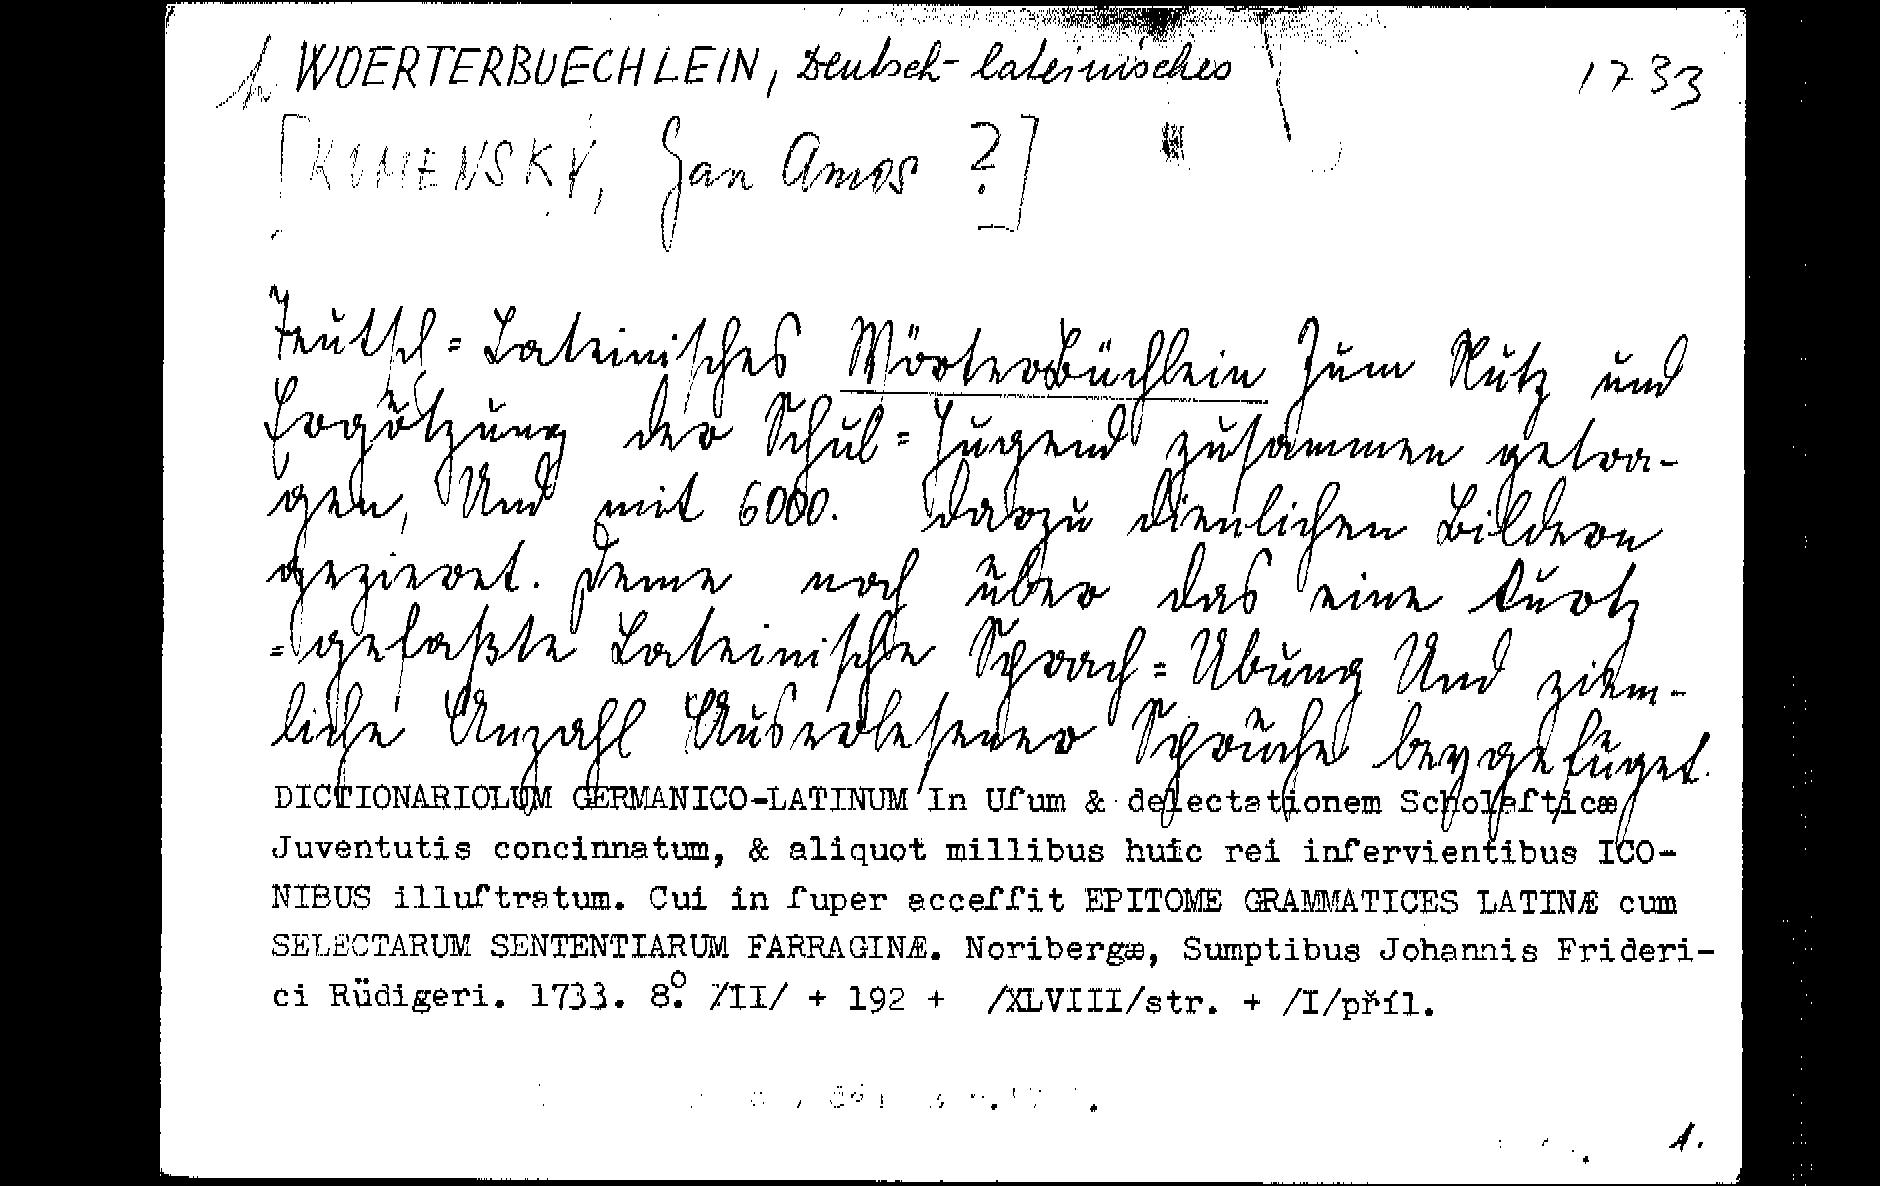 h WOERTERBUECHLEIN, Deutsch-lateinisches 1733
[KOMENSKÝ, Jan Amos ?]
Teutsch=Lateinisches Wörterbüchlein Zum Nutz und
Ergötzung der Schul=Jugend zusammen getra-
gen, Und mit 6000. darzu dienlichen Bildern
gezieret. Deme noch über das eine kurtz
=gefaßte Lateinische Sprach=Ubung Und ziem-
liche Anzahl Auserlesener Sprüche beygefüget.
DICTIONARIOLUM GERMANICO-LATINUM In Uſum & delectationem Scholaſticæ
Juventutis concinnatum, & aliquot millibus huic rei inſervientibus ICO-
NIBUS illuſtratum. Cui in ſuper acceſſit EPITOME GRAMMATICES LATINÆ cum
SELECTARUM SENTENTIARUM FARRAGINÆ. Noribergæ, Sumptibus Johannis Frideri-
ci Rüdigeri. 1733. 8°. /II/ + 192 + /XLVIII/str. + /I/příl.
1.